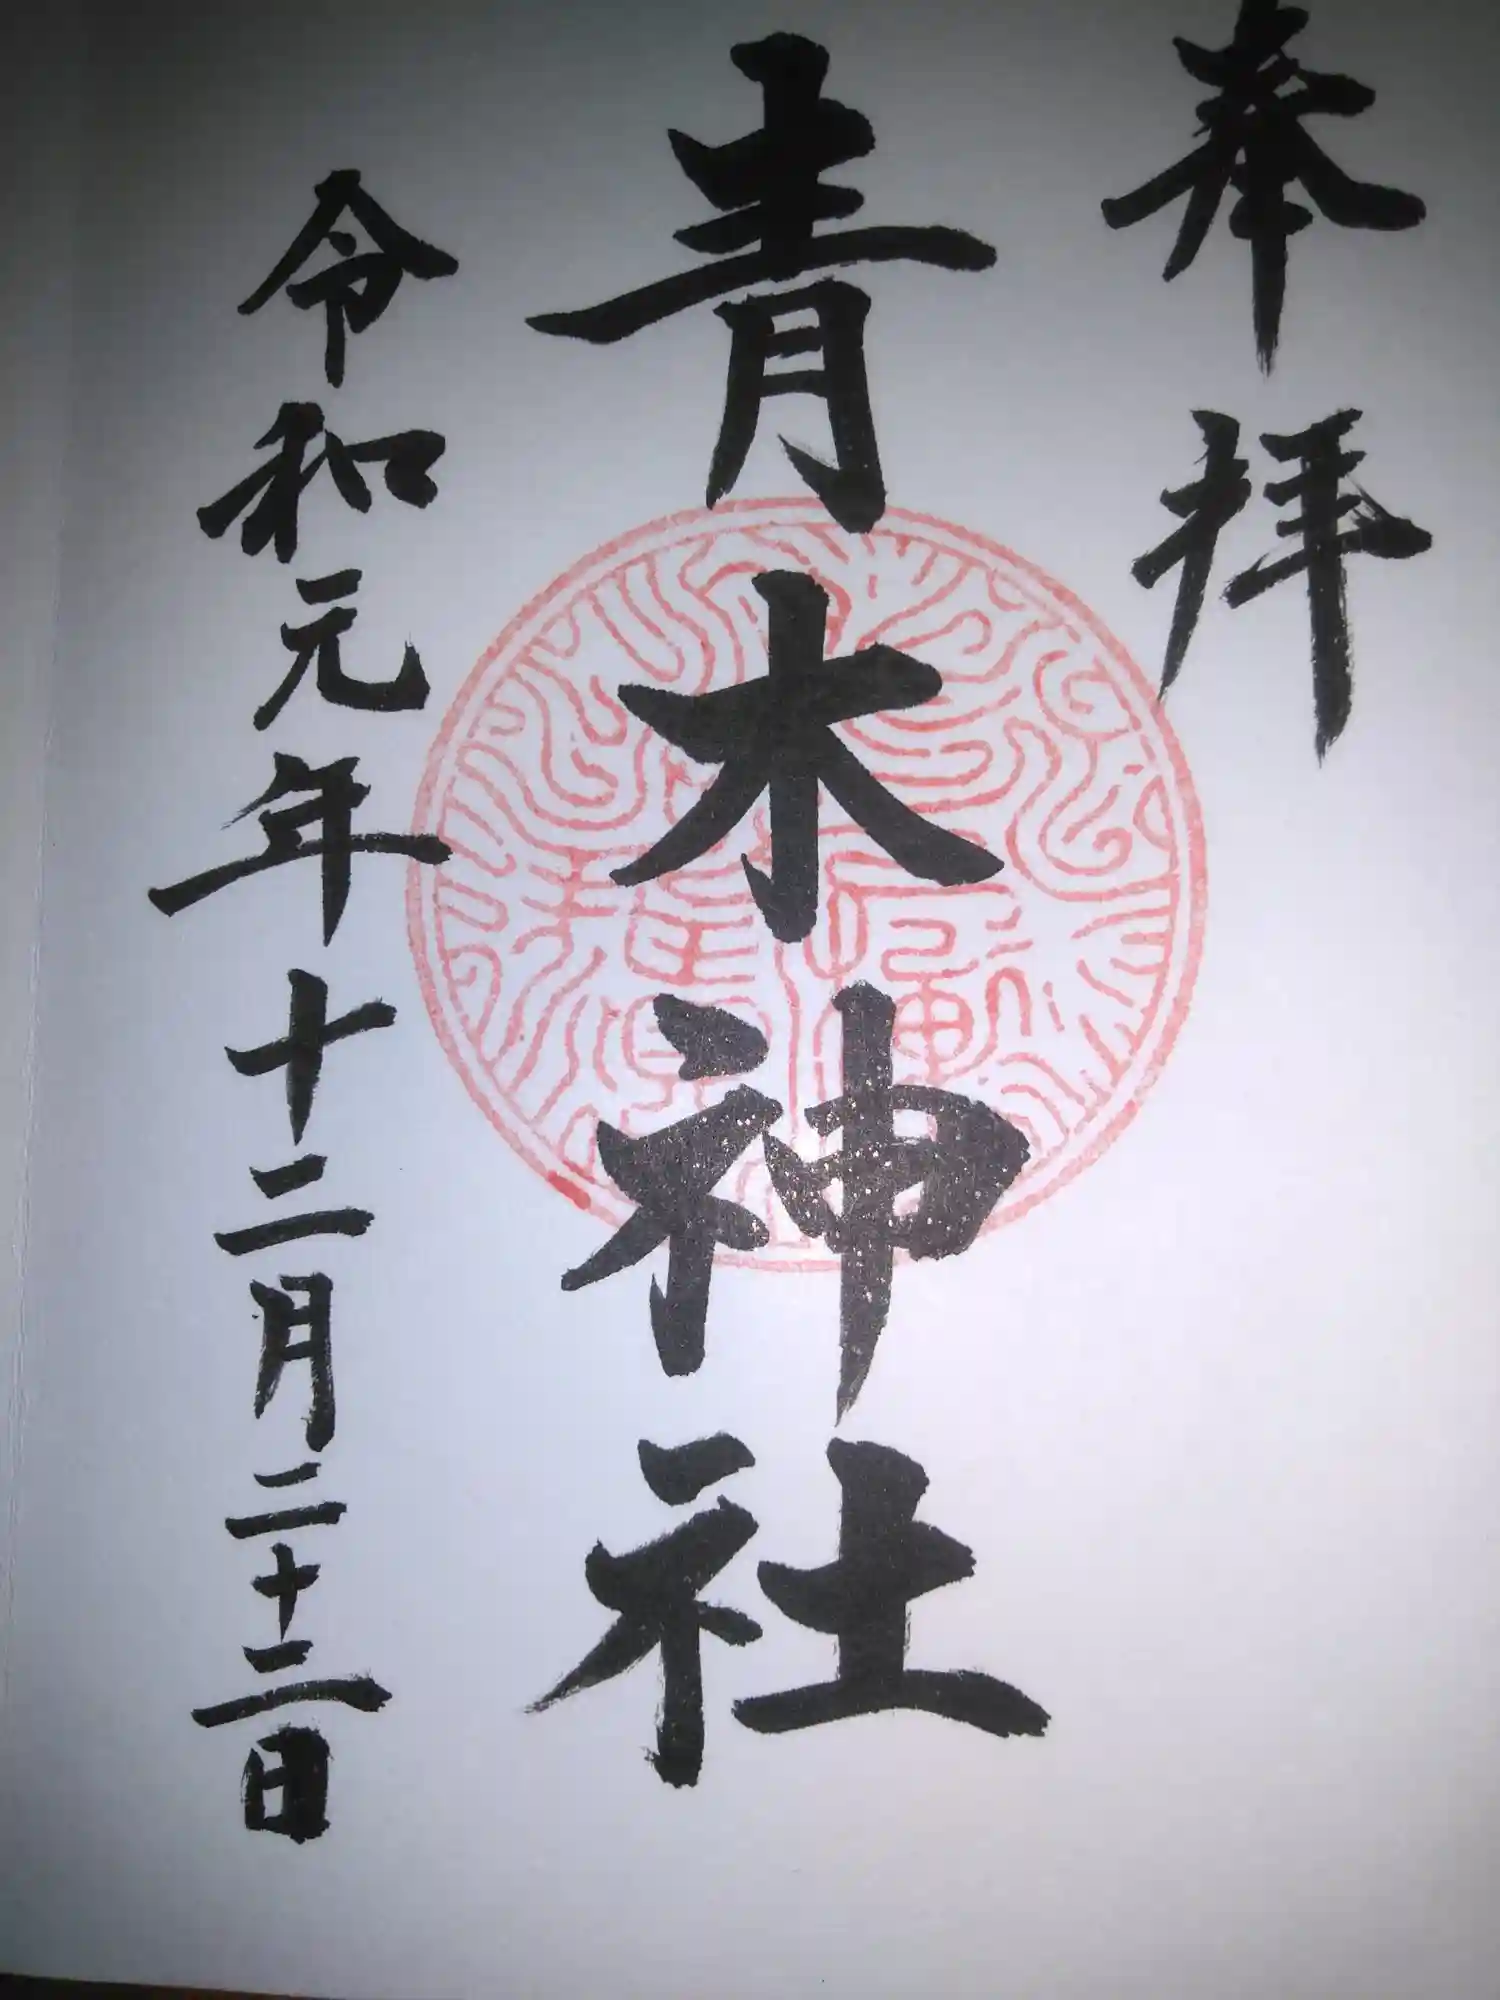 奉拝
青木神社
令和元年十二月二十二日